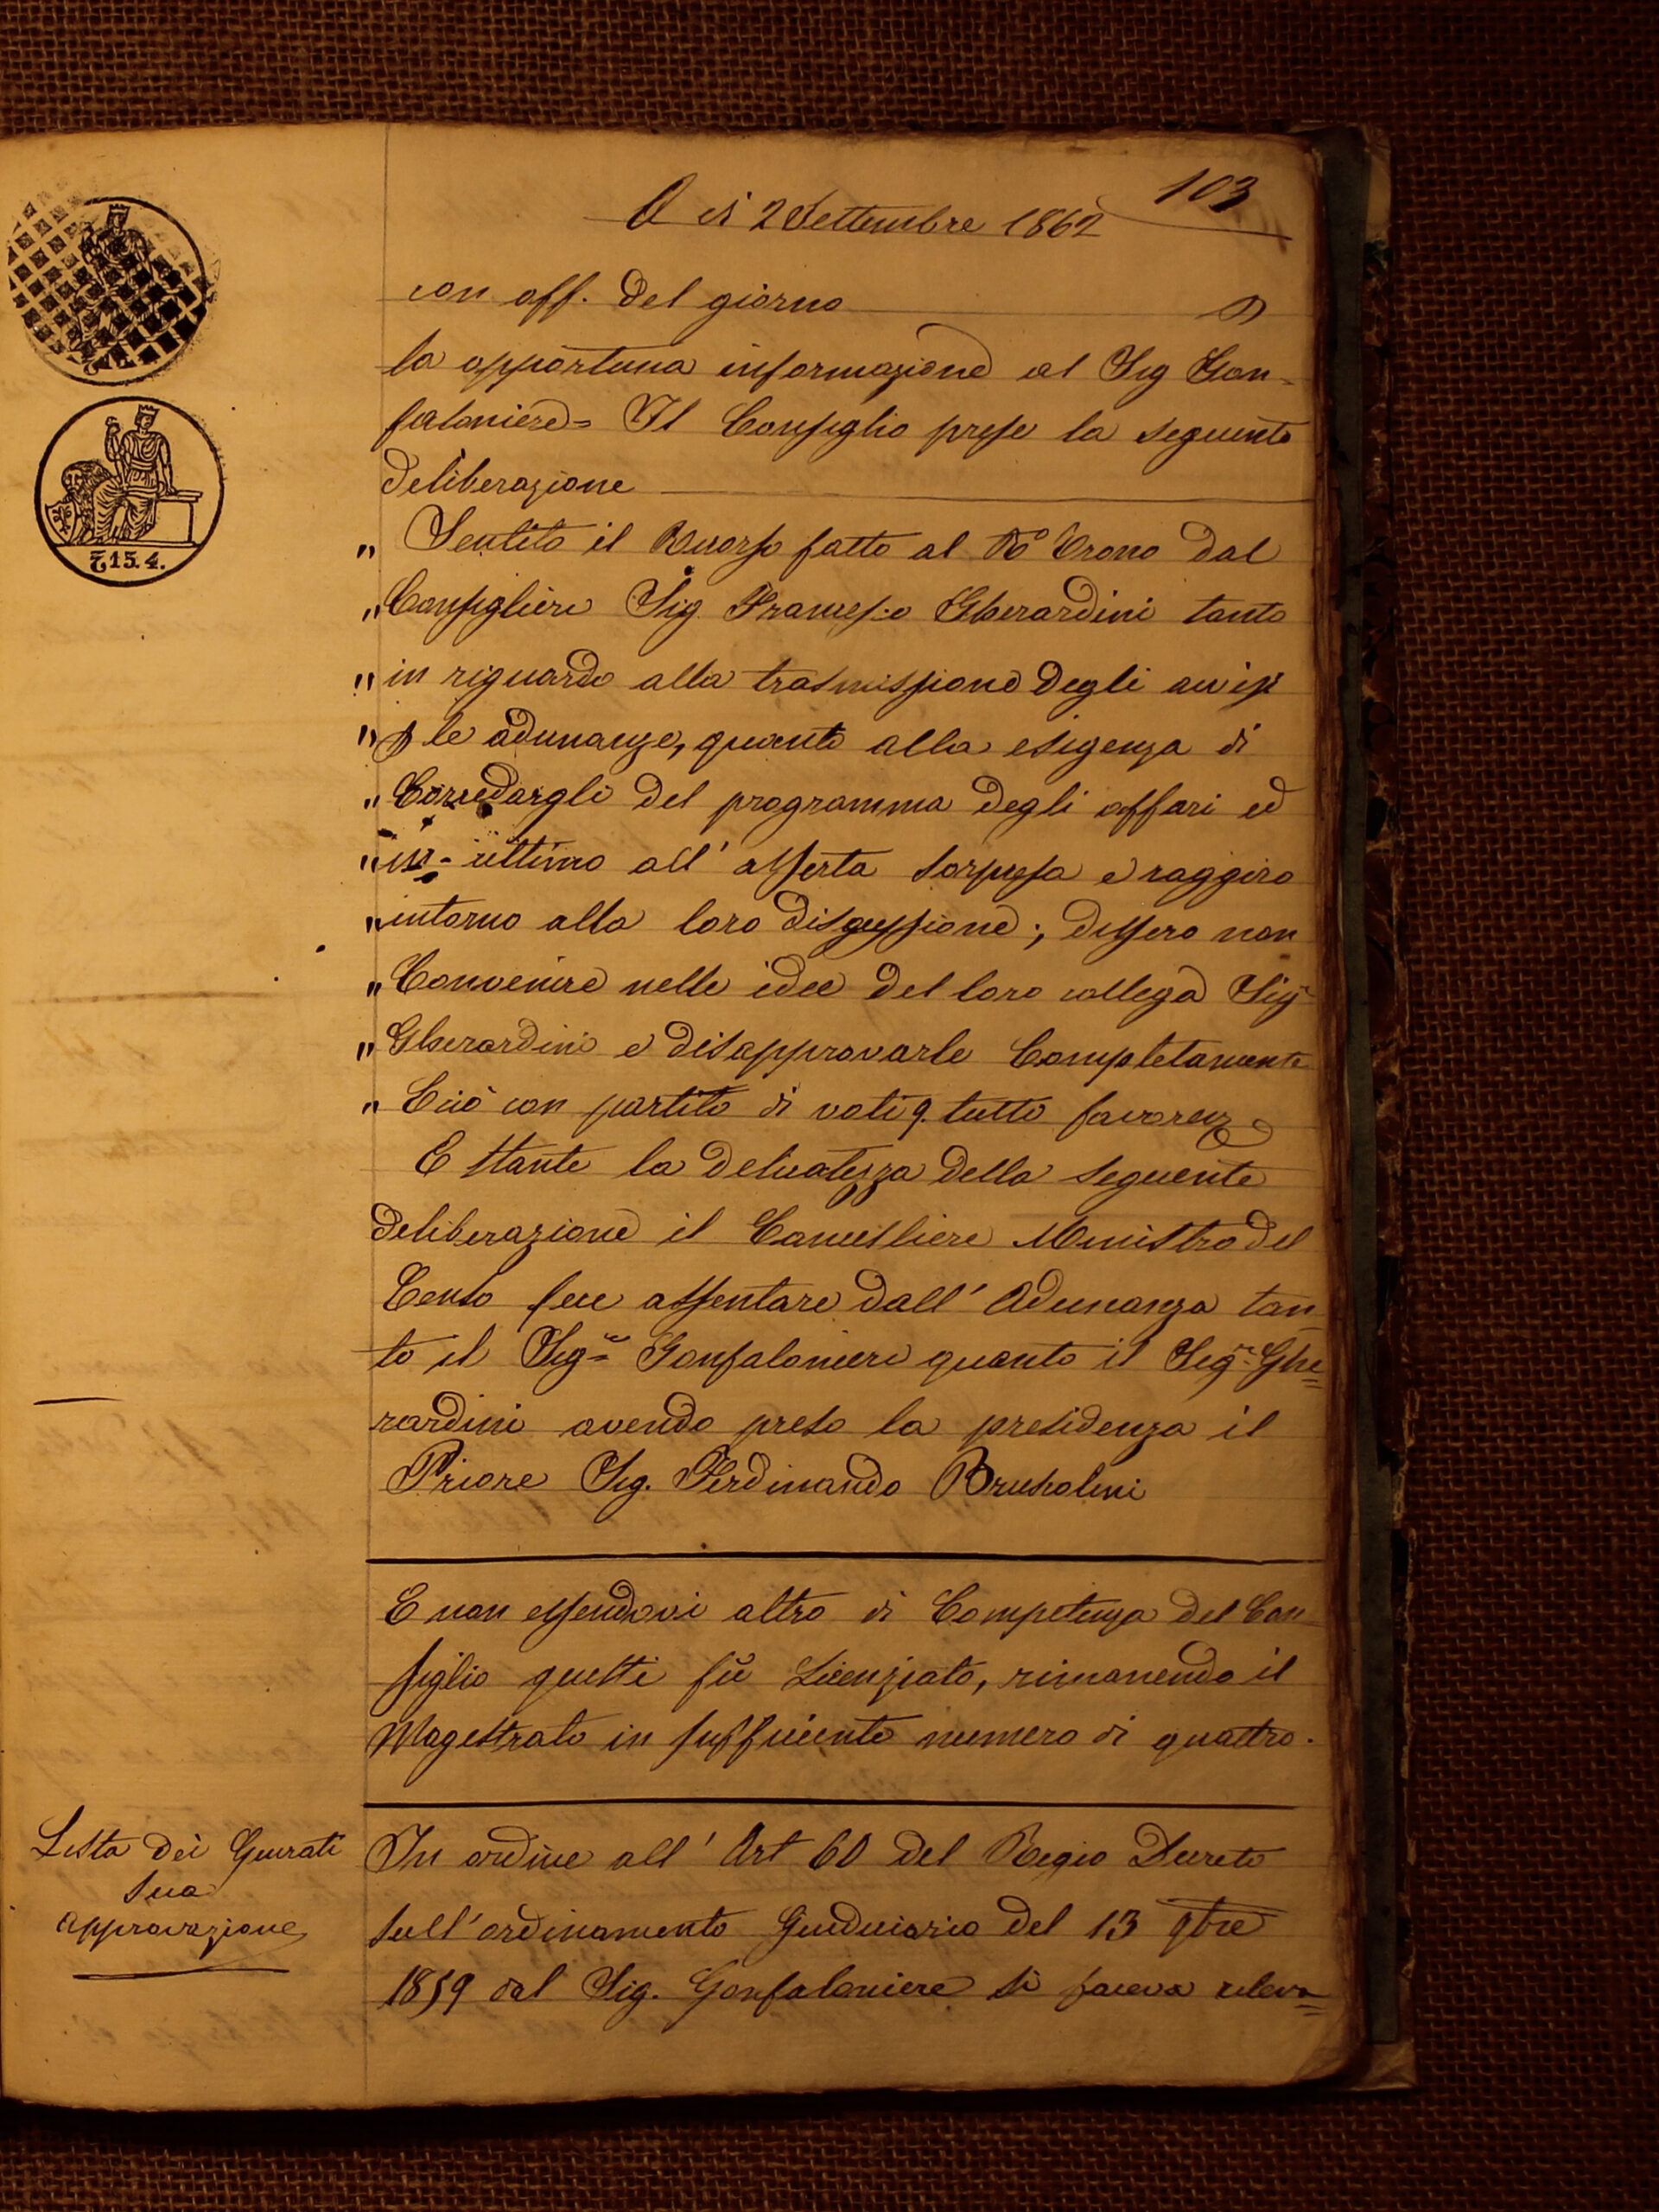 103
A dì 2 Settembre 1862
con off. del giorno
la opportuna informazione al Sig Gon-
faloniere = Il Consiglio prese la seguente
deliberazione
₤15.4.
" Sentito il Ricorso fatto al R° Trono dal
" Consigliere Sig. Francesco Gherardini tanto
" in riguardo alla trasmissione degli avvisi
" p le adunanze, quanto alla esigenza di
" Corredargli del programma degli affari ed
" in ultimo all' asserta sorpresa e raggiro
" intorno alla loro discussione; dissero non
" Convenire nelle idee del loro collega Sigr
" Gherardini e disapprovarle Completamente
" Ciò con partito di voti 9. tutto favorevz
E stante la delicatezza della seguente
deliberazione il Cancelliere Ministro del
Censo fece assentare dall' Adunanza tan
to il Sigre Gonfaloniere quanto il Sigr. Ghe=
rardini avendo preso la presidenza il
Priore Sig. Ferdinando Brusolini
E non essendovi altro di Competenza del Con
siglio questi fù Licenziato, rimanendo il
Magistrato in sufficiente numero di quattro.
Lista dei Giurati
sua
approvazione
In ordine all' Art 60 del Regio Decreto
sull' ordinamento Giudiciario del 13 9bre
1859 dal Sig. Gonfaloniere si faceva rileva=